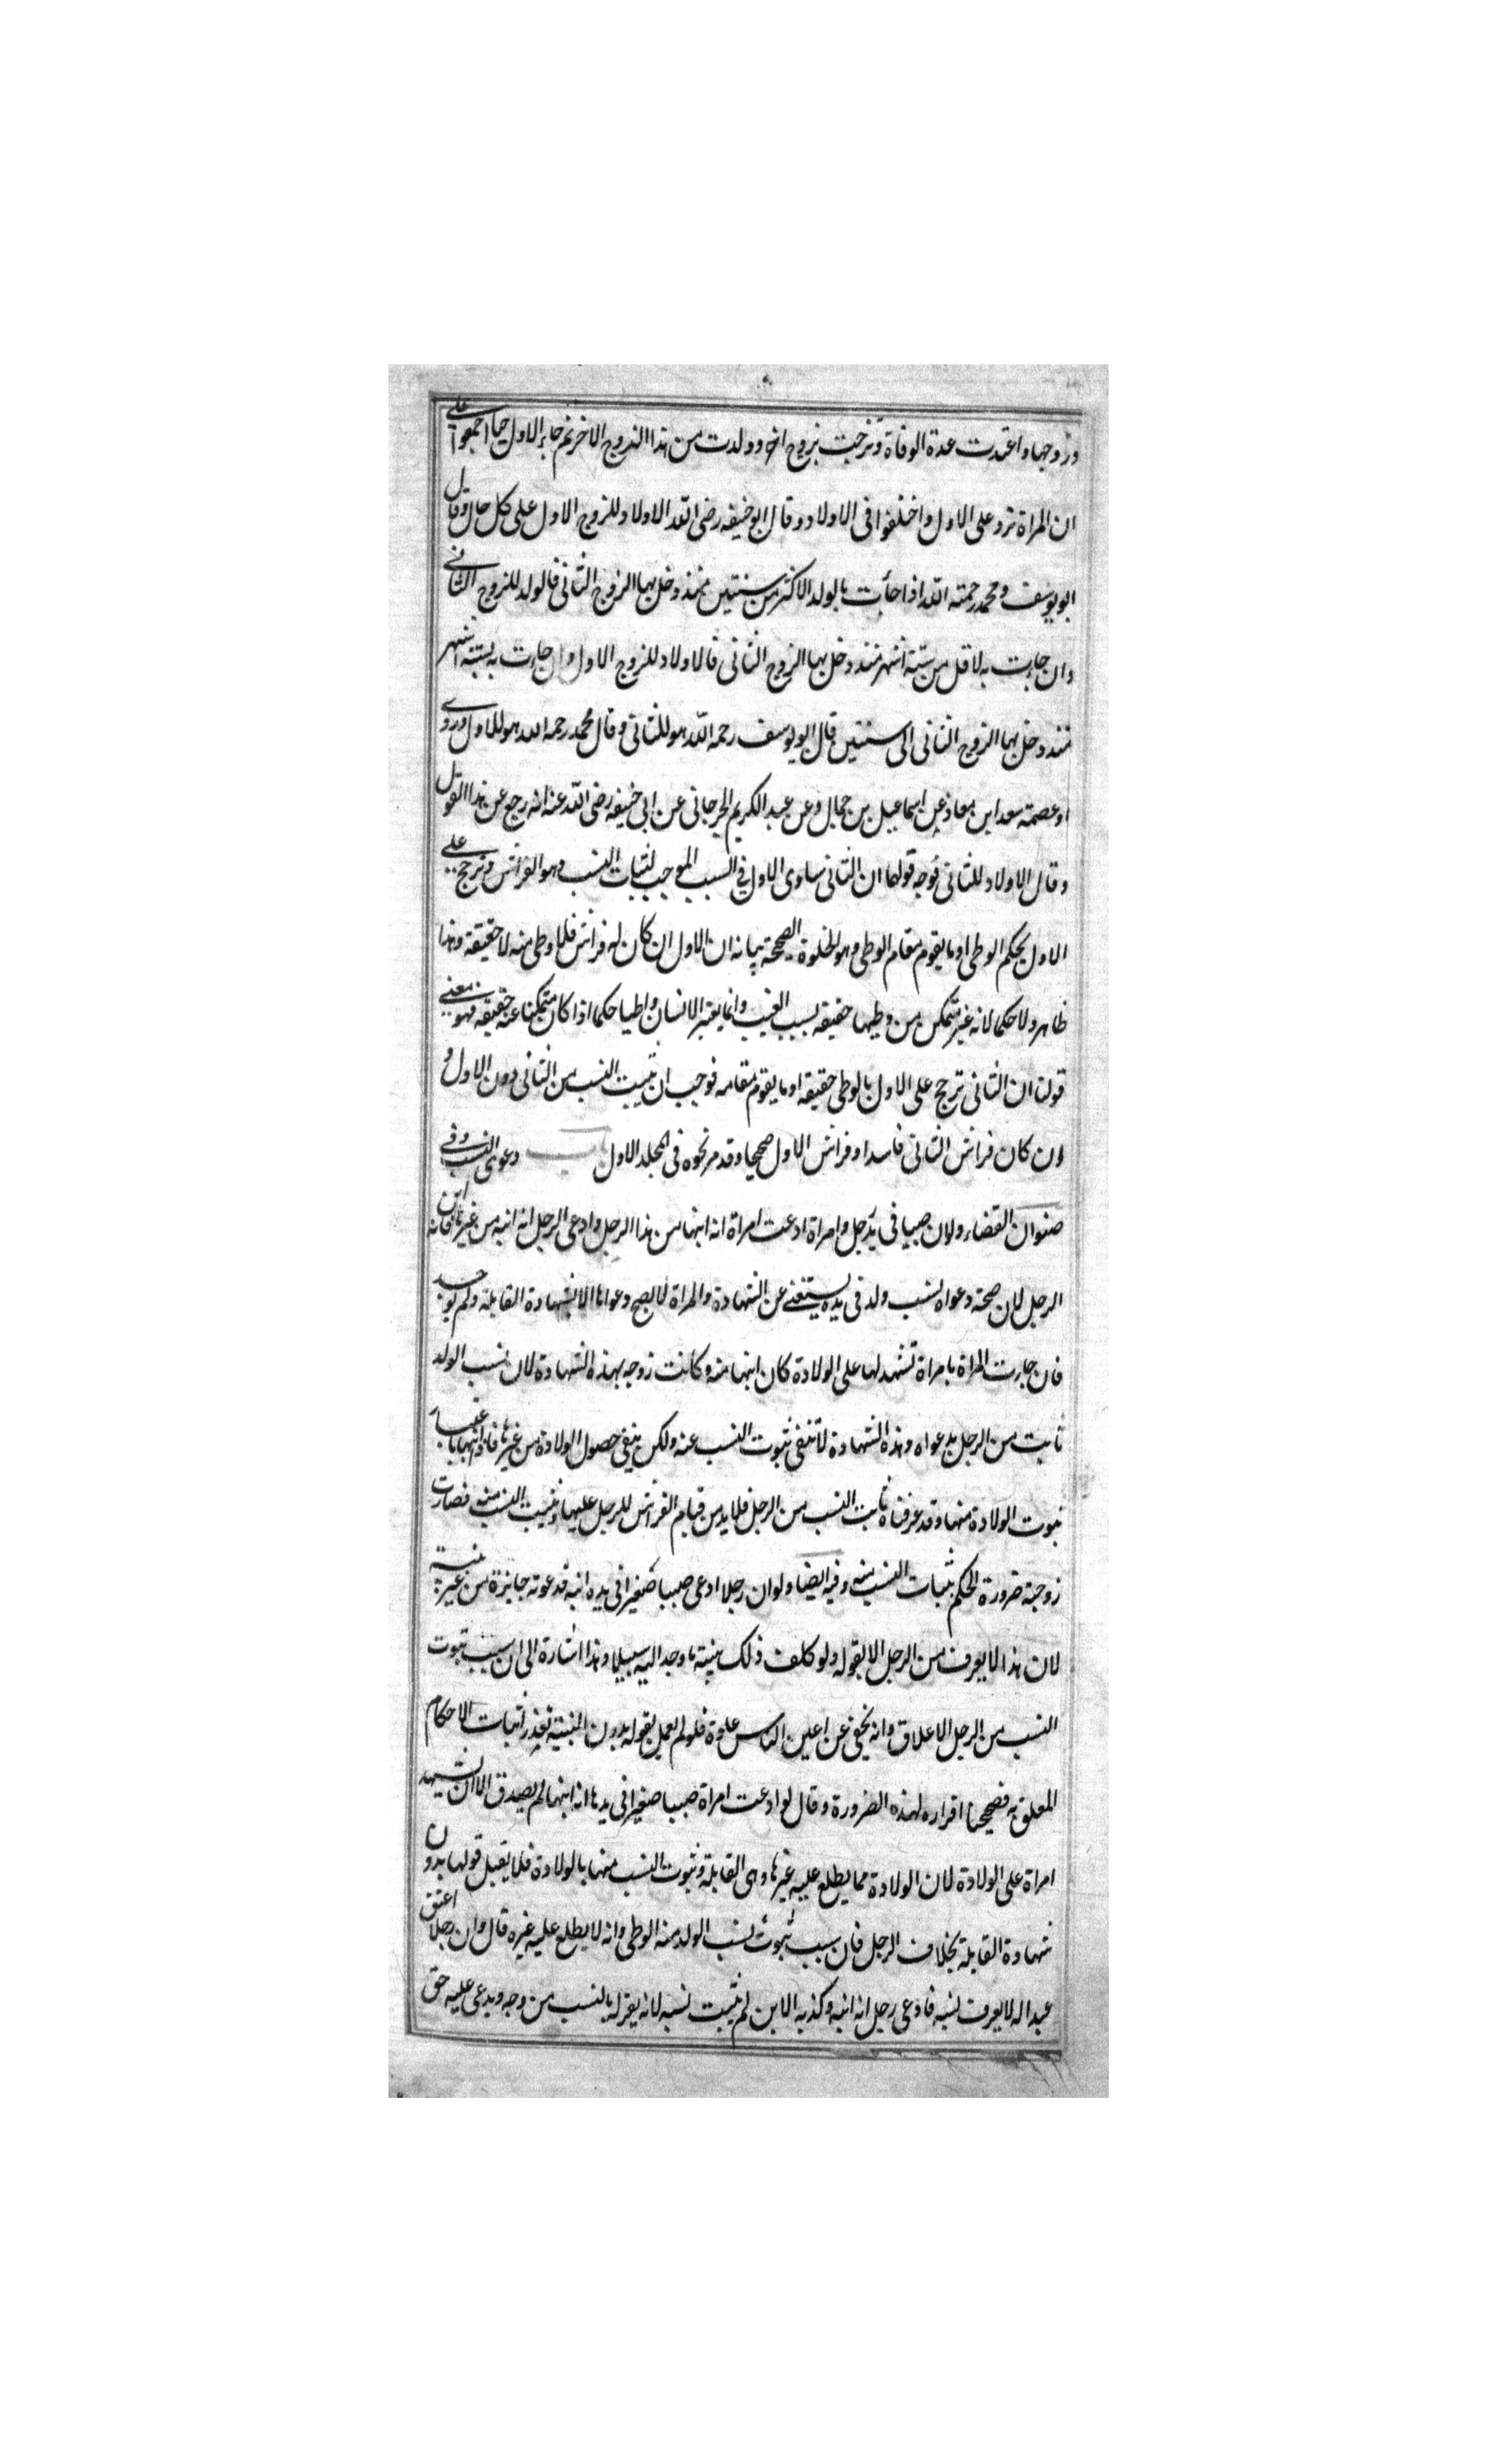 وزوجها واعتدت عدة الوفاة وتزوجت بزوج اخر وولدت من هذا الزوج الاخر ثم جاء الاول حيا اجمعوا على
ان المراة ترد على الاول واختلفوا فى الاولاد وقال ابو حنيفه رضى الله الاولاد للزوج الاول على كل حال وقال
ابو يوسف ومحمد رحمته الله اذا جأت بالولد الاكثر من سنتين منذ دخل بها الزوج الثانى فالولد للزوج الثانى
وان جاءت به لاقل من ستة اشهر منذ دخل بها الزوج الثانى فالاولاد للزوج الاول وان جاءت به لستة اشهر
منذ دخل بها الزوج الثانى الى سنتين قال ابو يوسف رحمه الله هو للثانى وقال محمد رحمه الله هو للاول وروى
او عصمته سعد ابن معاذ عن اسماعيل بن حمال وعن عبد الكريم الجرجانى عن ابى حنيفه رضى الله عنه انه رجع عن هذا القول
وقال الاولاد للثانى فوجه قولها ان الثانى ساوى الاول فى السبب الموجب لثبات النسب وهو الفراش وترجح على
الاول بحكم الوطى او ما يقوم مقام الوطى وهو الخلوة الصحيحة بيانه ان الاول ان كان له فراش فلا وطى منه لا حقيقة وهذا
ظاهر ولا حكما لانه غير متمكن من وطيها حقيقه بسبب الغيب وانما يعتبر الانسان واطيا حكما اذا كان متمكنا عنه حقيقه فهو معنى
قولنا ان الثانى ترجح على الاول بالوطى حقيقه او ما يقوم مقامه فوجب ان يثبت النسب من الثانى دون الاول و
ان كان فراش الثانى فاسدا وفراش الاول صحيحا وقد مر نحوه فى المجلد الاول دعوى النسب وفى
صنوان القضاء ولو ان صبيا فى يد رجل وامراة ادعت امراة انه ابنها من هذا الرجل وادعى الرجل انه ابنه من غيرها فانه ابن
الرجل لان صحة دعواه لنسب ولد فى يده يستغنى عن الشهادة والمراة لا يصح دعواها الا بشهادة القابلة ولم يوجد
فان جاءت المراة بامراة تشهد لها على الولادة كان ابنها منه وكانت زوجه بهذه الشهادة لان نسب الولد
ثابت من الرجل بدعواه وهذه الشهادة لا تنفى ثبوت النسب عنه ولكن ينفى حصول الولادة من غيرها فاذا باعتبار
ثبوت الولادة منها وقد عرفناه ثابت النسب من الرجل فلا بد من قيام الفراش للرجل عليها وثبت النسب منه فصارت
زوجة ضرورة الحكم بثبات النسب منه وفيه ايضا ولو ان رجلا ادعى صبيا صغيرا فى يده انه ابنه فدعوته جايزة من غير بينة
لان هذا لا يعرف من الرجل الا بقوله ولو كلف ذلك بينة ما وجد اليه سبيلا وهذا اشارة الى ان سبب ثبوت
النسب من الرجل الاعلاق وانه يخفى عن اعين الناس علوة فلو لم يعمل بقوله بدون البينة تعذر اثبات الاحكام
المعلق به فصححنا اقراره لهذه الضرورة وقال لو ادعت امراة صبيا صغيرا فى يدها انه ابنها لم يصدق الا ان تشهد
امراة على الولادة لان الولادة مما يطلع عليه غيرها وهى القابلة وثبوت النسب منها بالولادة فلا يقبل قولها بدون
شهادة القابلة بخلاف الرجل فان سبب ثبوت نسب الولد منه الوطى وانه لا يطلع عليه غيره قال وان رجلا اعتق
عبدا له لا يعرف نسبه فادعى رجل انه ابنه وكذبه الابن لم يثبت نسبه لانه يقر له بالنسب من وجه ويدعى عليه حق